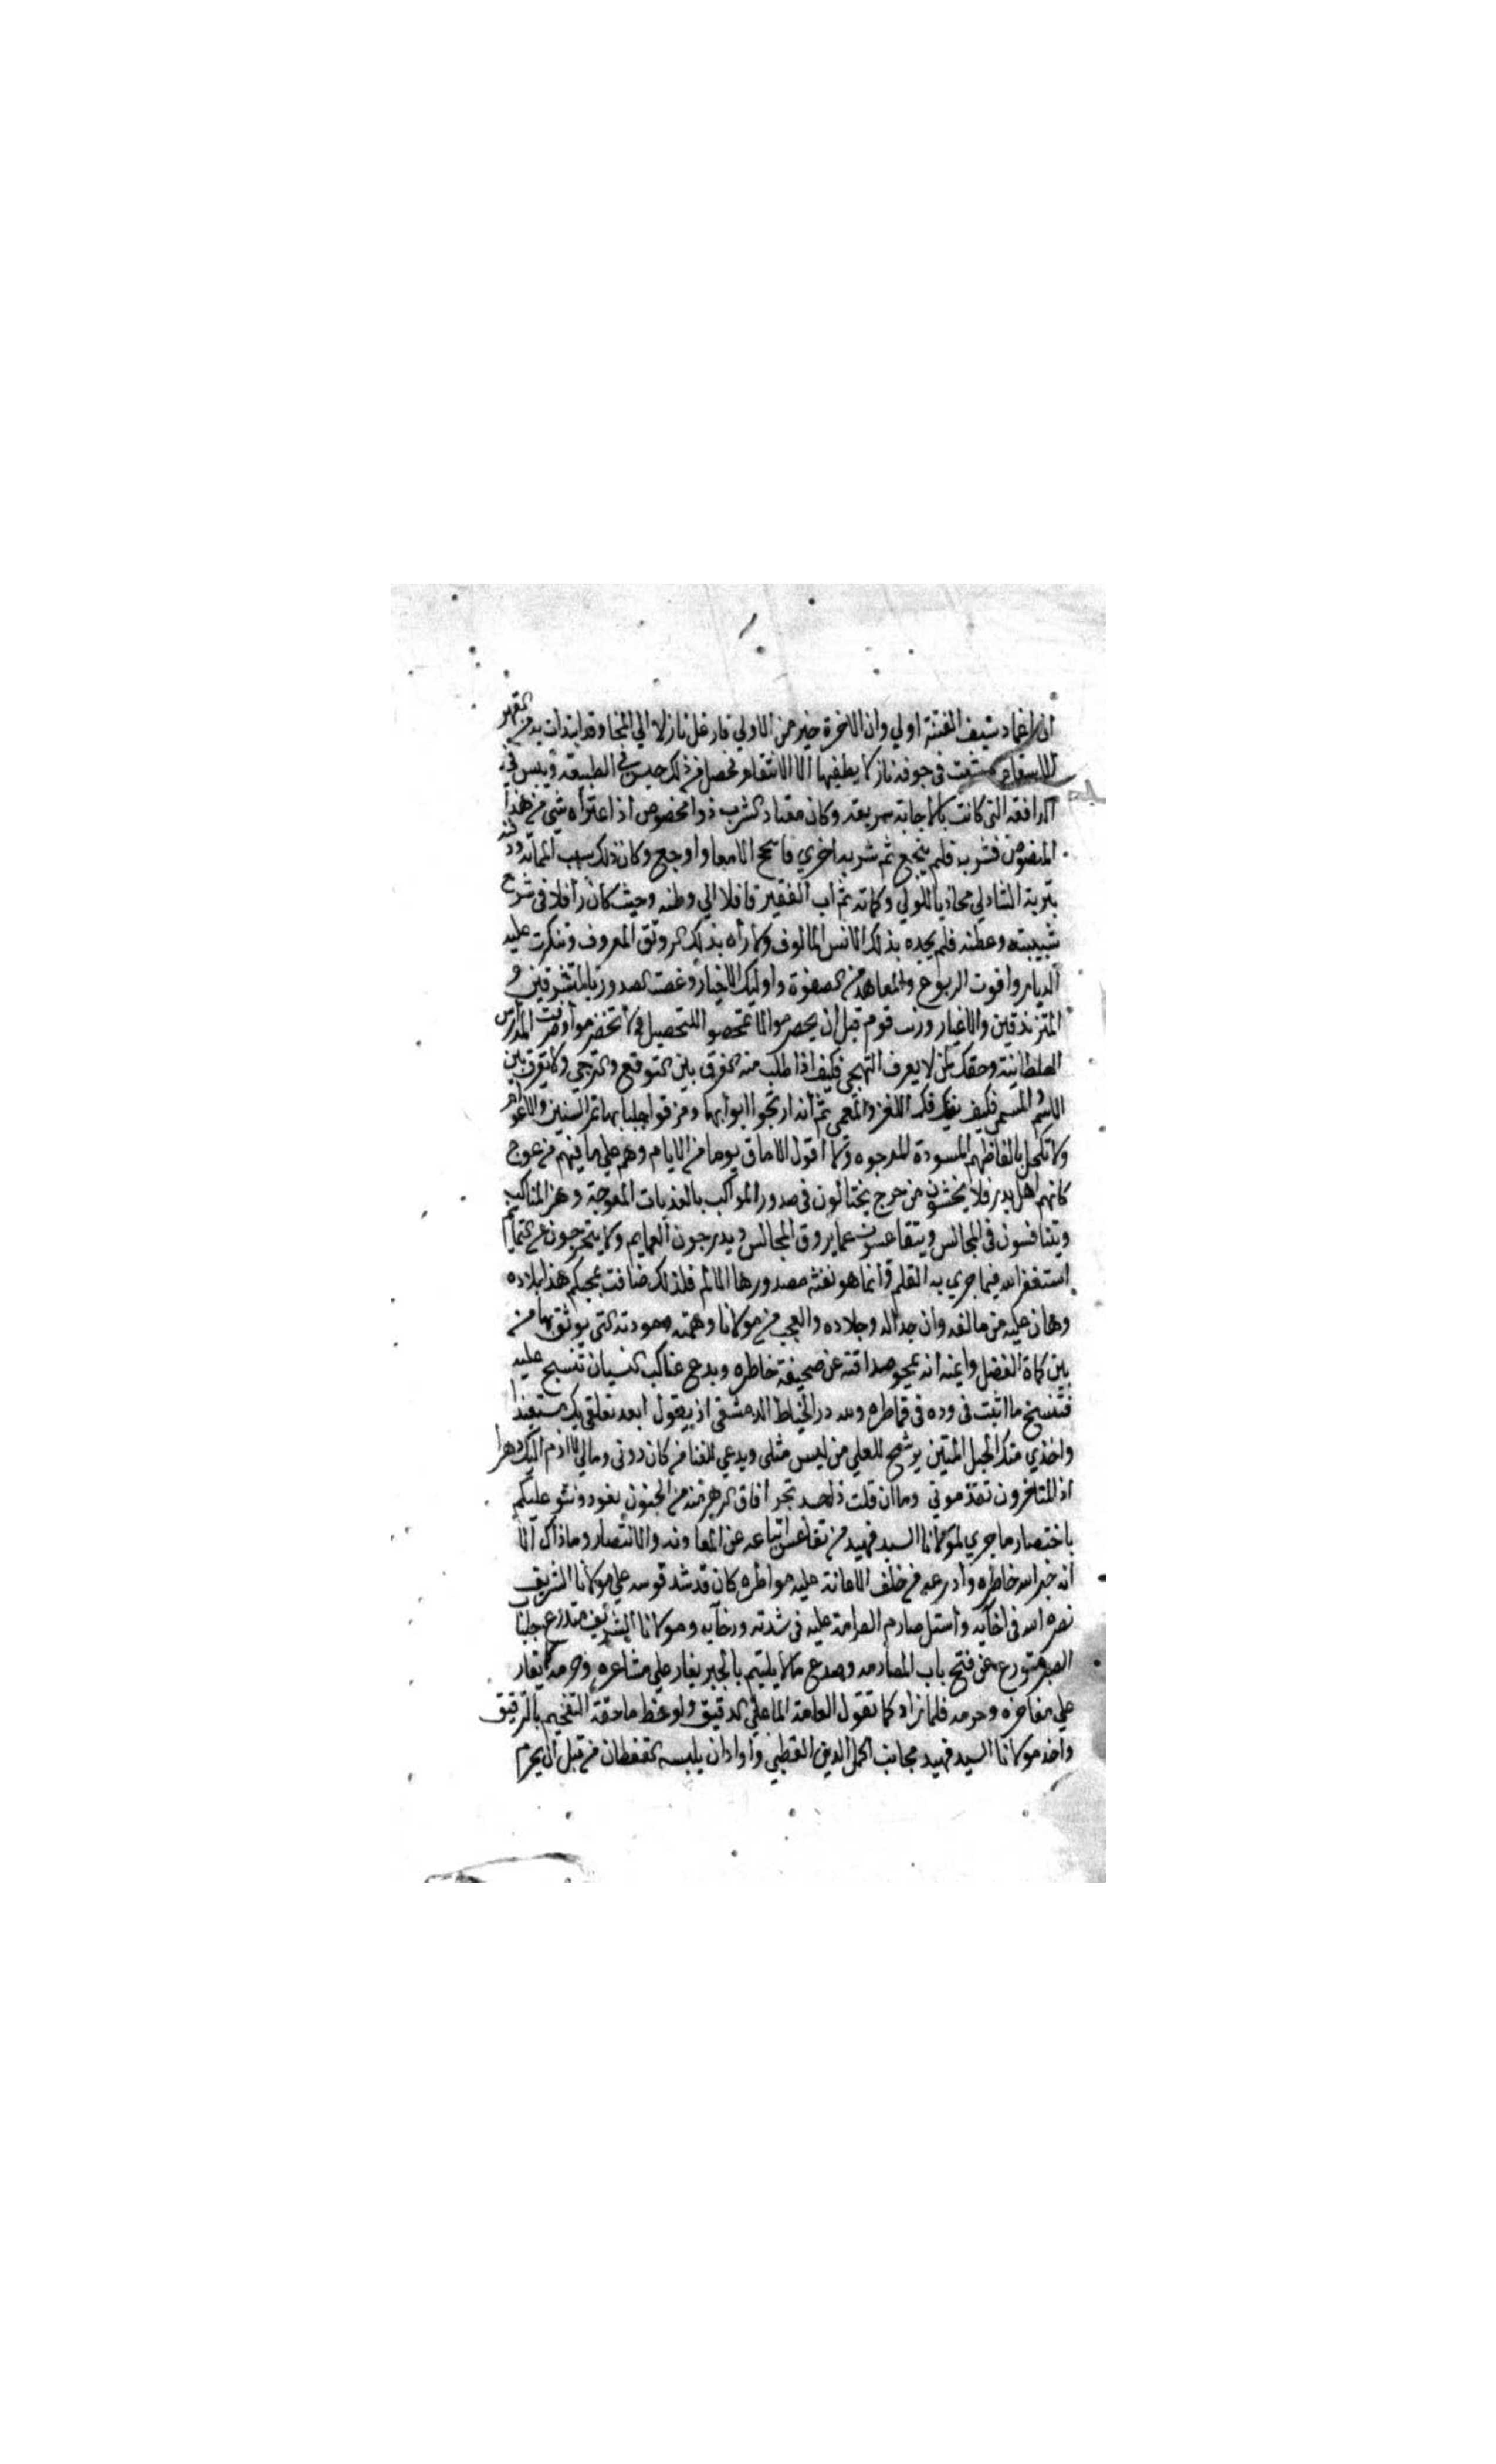 ان اغماد سيف الفتنة اولي وان الاخرة خير من الاولي فارغل نازلا الي المخا وقد ابتدات بدم القهر
للاسقام في جوفه ناز لا يطفيها الا الانتقام فحصل من ذلك حبس في الطبيعه ويبس في
الدافقه التي كانت بالاجابة سريعه وكان معتاد لشرب دوا مخصوص اذا اعتراه شي من هذا
المنصوص فشربه فلم ينجع ثم شربه اخري فاسحج الامعا واوجع وكان ذلك سبب المماته ودفنه
بتربة الشادلي محاذيا للولي وكماته ثم اب الفقير قافلا الي وطنه وحيث كان رافلا في شرخ
شبيبته وعطنه فلم يجده بذلك الانس المالوف ولا رأه بذلك الرونق المعروف وتنكرت عليه
الديار واقوت الربوع والمعاهد من الصفوة واوليك الاخيار وغصت الصدور بالمتشرقين و
المتزندقين والاغيار وزبب قوم قبل ان يحصرموا لا تمحضوا للتحصيل ولا تخضرموا وفوضت المدارس
السلطانية وحقك لمن لا يعرف التهجي فكيف اذا طلب منه الفرق بين التوقع والترجي ولا يفرق بين
الاسم والمسمي فكيف يفك اللغز والمعمي ثم انه ارتجوا ابوابها ومزقوا جلبابها مر السنين والاعوام
ولا تكحل بالفاظهم المسودة للوجوه ولا اقول الاماق يوما من الايام وهم علي ما فيهم من عوج
كانهم اهل بدر فلا يخشون من حرج يختالون في صدور المواكب بالعذبات المعوجة وهز المناكب
ويتنافسون في المجالس ويتقاعسون عما يروق المجالس ويدرجون العمايم ولا يتحرجون عن التمايم
استغفر الله فيما جري به القلم وانما هو نفثة مصدورها الالم فلذلك ضاقت بمحبكم هذا بلاده
وهان عليه من مالفه وان جداله وجلاده والعجب من مولانا وهمته وعهوده التي يوثق بها من
بين كماة الفضل وايمنه انه يمحو صداقته عن صحيفة خاطره ويدع عناكب النسيان تنسج عليه
فتنسخ ما اثبت في وده في قماطره ولله در الخياط الدمشقي اذ يقول ابعد تعلقي بك مستعيذا
واخذي منك الحبل المتين يرشح للعلي من ليس مثلي ويدعي للغنا من كان دوني ومالي لا اذم اليك دهرا
اذ المتاخرون تقدموني وما ان قلت ذا لحسد تجر افاق الدهر منه من الجنون نعود ونتلو عليكم
باختصار ما جري لمولانا السيد فهيد من تقاعس اتباعه عن المعاونه والانتصار وما ذاك الا
انه جبر الله خاطره وادر عليه من خلف الاعانة عليه مواطره كان قد شد قوسه علي مولانا الشريف
نصره الله في اخآيه واستل صارم الصرامة عليه في شدته ورخآيه ومولانا الشريف متدرع جلباب
الصبر متورع عن فتح باب المصادمه وصدع مالا يلتيم بالجبر يغار علي مشاعره وحرمه كما يغار
علي مفاخره وحرمه فلما زاد كما تقول العامة الما علي الدقيق ولو غلط ما حقه التفخيم بالترقيق
واخذ مولانا السيد فهيد بجانب الحمل الدين القطبي وارادان يلبسه القفطان من قبل ان يحرم